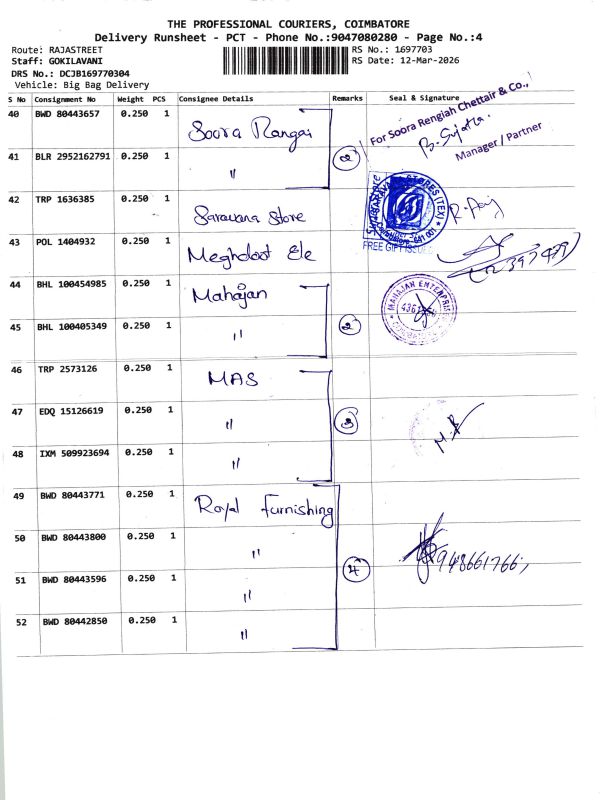 THE PROFESSIONAL COURIERS, COIMBATORE
Delivery Runsheet - PCT - Phone No.:9047080280 - Page No.:4
Route: RAJASTREET
RS No.: 1697703
Staff: GOKILAVANI
RS Date: 12-Mar-2026
DRS No.: DCJB169770304
Vehicle: Big Bag Delivery
S No Consignment No Weight PCS Consignee Details Remarks Seal & Signature
40 BWD 80443657 0.250 1 Soora Rangai
For Soora Rengiah Chettair & Co.,
Manager / Partner
41 BLR 2952162791 0.250 1 "
2
42 TRP 1636385 0.250 1 Saravana Store
STORES (TEX)
FREE GIFT ISSUE
43 POL 1404932 0.250 1 Meghdoot Ele
44 BHL 100454985 0.250 1 Mahajan
MAHAJAN ENTERPRIS
45 BHL 100405349 0.250 1 "
2
46 TRP 2573126 0.250 1 MAS
47 EDQ 15126619 0.250 1 "
3
48 IXM 509923694 0.250 1 "
49 BWD 80443771 0.250 1 Royal Furnishing
50 BWD 80443800 0.250 1 "
4
51 BWD 80443596 0.250 1 "
52 BWD 80442850 0.250 1 "